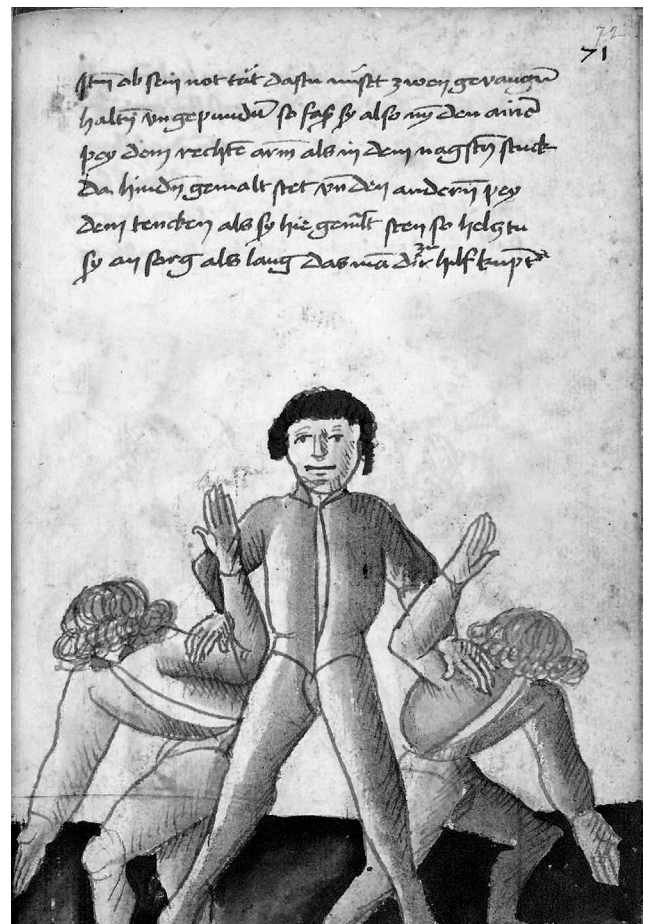 72
71
Itm̄ ob sein not tät dastu müest zwen gevangn̄
haltn̄ vngepundn̄ so fass sy also nȳ den ainē
pey dem rechtē arm̄ als in dem nagstn̄ stuck
Da hindn̄ gemalt stet vn̄ den andern̄ pey
dem tencken als sy hie gemalt sten so helstu
sy an sorg als lang das mā dir zu hilf kupt